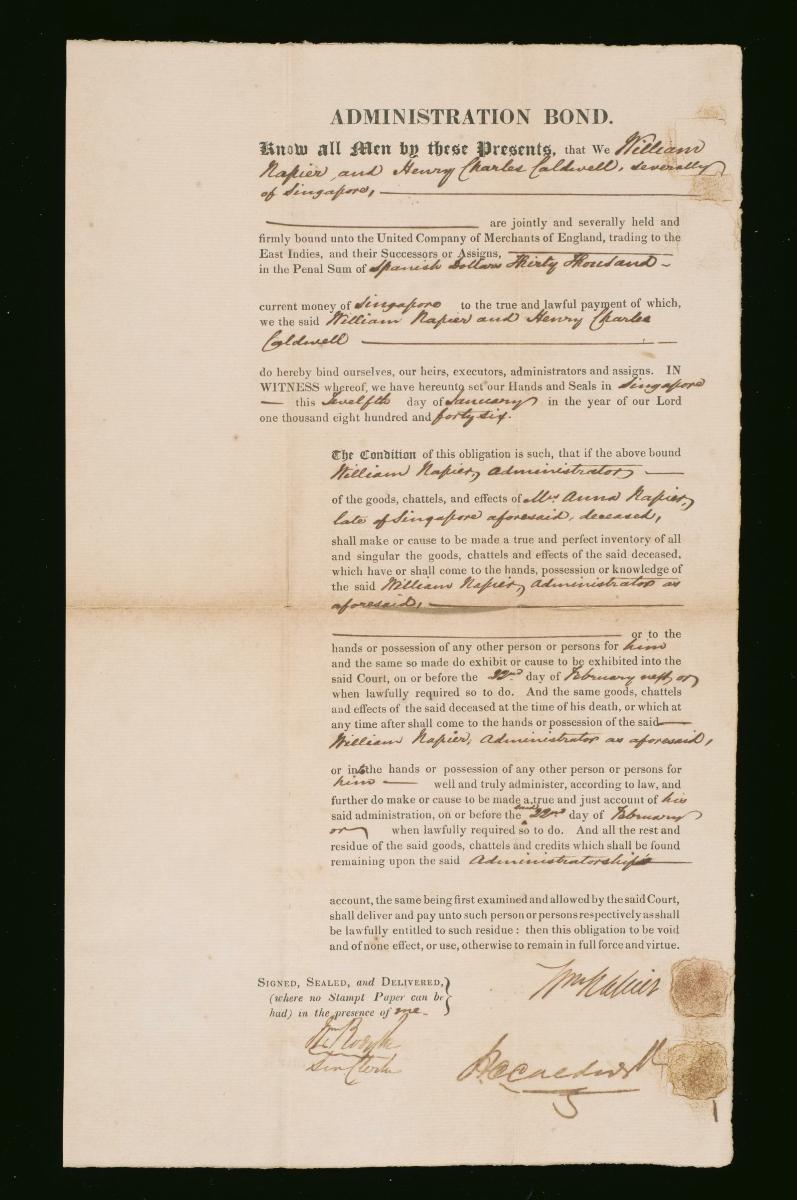 ADMINISTRATION BOND.
Know all Men by these Presents, that We William
Napier and Henry Charles Caldwell, severally
of Singapore,
are jointly and severally held and
firmly bound unto the United Company of Merchants of England, trading to the
East Indies, and their Successors or Assigns,
in the Penal Sum of Spanish Dollars Thirty Thousand
current money of Singapore to the true and lawful payment of which,
we the said William Napier and Henry Charles
Caldwell
do hereby bind ourselves, our heirs, executors, administrators and assigns. IN
WITNESS whereof, we have hereunto set our Hands and Seals in Singapore
this Twelfth day of January in the year of our Lord
one thousand eight hundred and forty six.
The Condition of this obligation is such, that if the above bound
William Napier, Administrator
of the goods, chattels, and effects of Mrs Anna Napier,
late of Singapore aforesaid, deceased,
shall make or cause to be made a true and perfect inventory of all
and singular the goods, chattels and effects of the said deceased,
which have or shall come to the hands, possession or knowledge of
the said William Napier, Administrator as
aforesaid,
or to the
hands or possession of any other person or persons for him
and the same so made do exhibit or cause to be exhibited into the
said Court, on or before the 22nd day of February next, or
when lawfully required so to do. And the same goods, chattels
and effects of the said deceased at the time of his death, or which at
any time after shall come to the hands or possession of the said
William Napier, Administrator as aforesaid,
or into the hands or possession of any other person or persons for
him well and truly administer, according to law, and
further do make or cause to be made a true and just account of his
said administration, on or before the said 22nd day of February
or when lawfully required so to do. And all the rest and
residue of the said goods, chattels and credits which shall be found
remaining upon the said Administratorship's
account, the same being first examined and allowed by the said Court,
shall deliver and pay unto such person or persons respectively as shall
be lawfully entitled to such residue: then this obligation to be void
and of none effect, or use, otherwise to remain in full force and virtue.
SIGNED, SEALED, and DELIVERED,
(where no Stampt Paper can be
had) in the presence of me
Wm Napier
Clerk
HCCaldwell